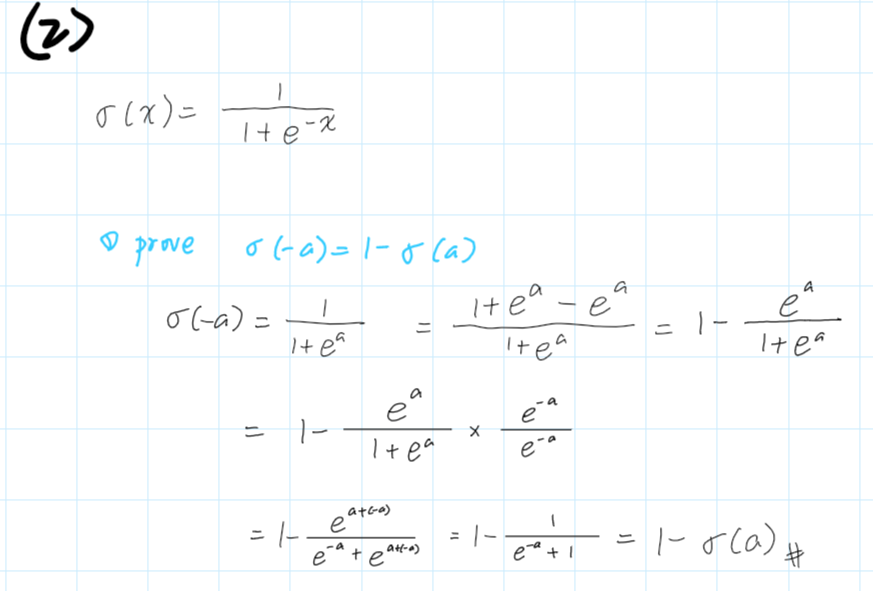 (2)
σ(x) = \frac{1}{1+e^{-x}}
① prove σ(-a) = 1 - σ(a)
σ(-a) = \frac{1}{1+e^{a}} = \frac{1+e^{a}-e^{a}}{1+e^{a}} = 1 - \frac{e^{a}}{1+e^{a}}
= 1 - \frac{e^{a}}{1+e^{a}} × \frac{e^{-a}}{e^{-a}}
= 1 - \frac{e^{a+(-a)}}{e^{-a}+e^{a+(-a)}} = 1 - \frac{1}{e^{-a}+1} = 1 - σ(a) #